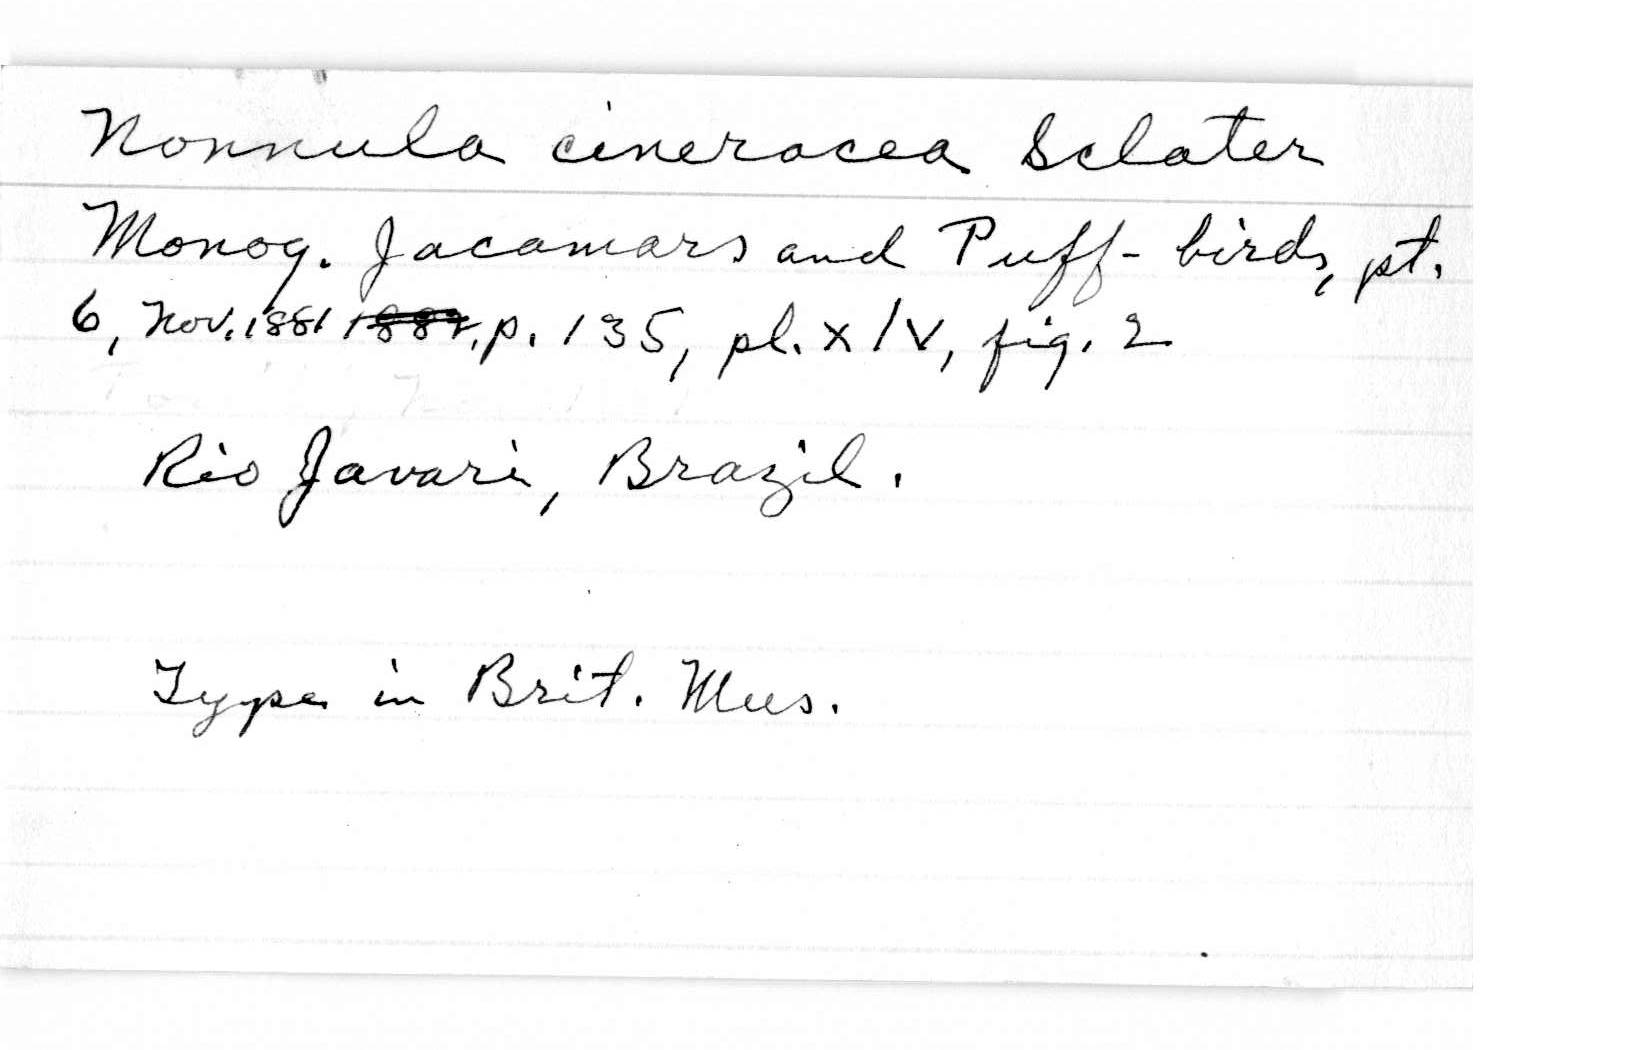 Nonnula cineracea Sclater
Monog. Jacamars and Puff-birds, pt.
6, Nov. 1881 1882, p. 135, pl. XLV, fig. 2
Rio Javari, Brazil.
Type in Brit. Mus.